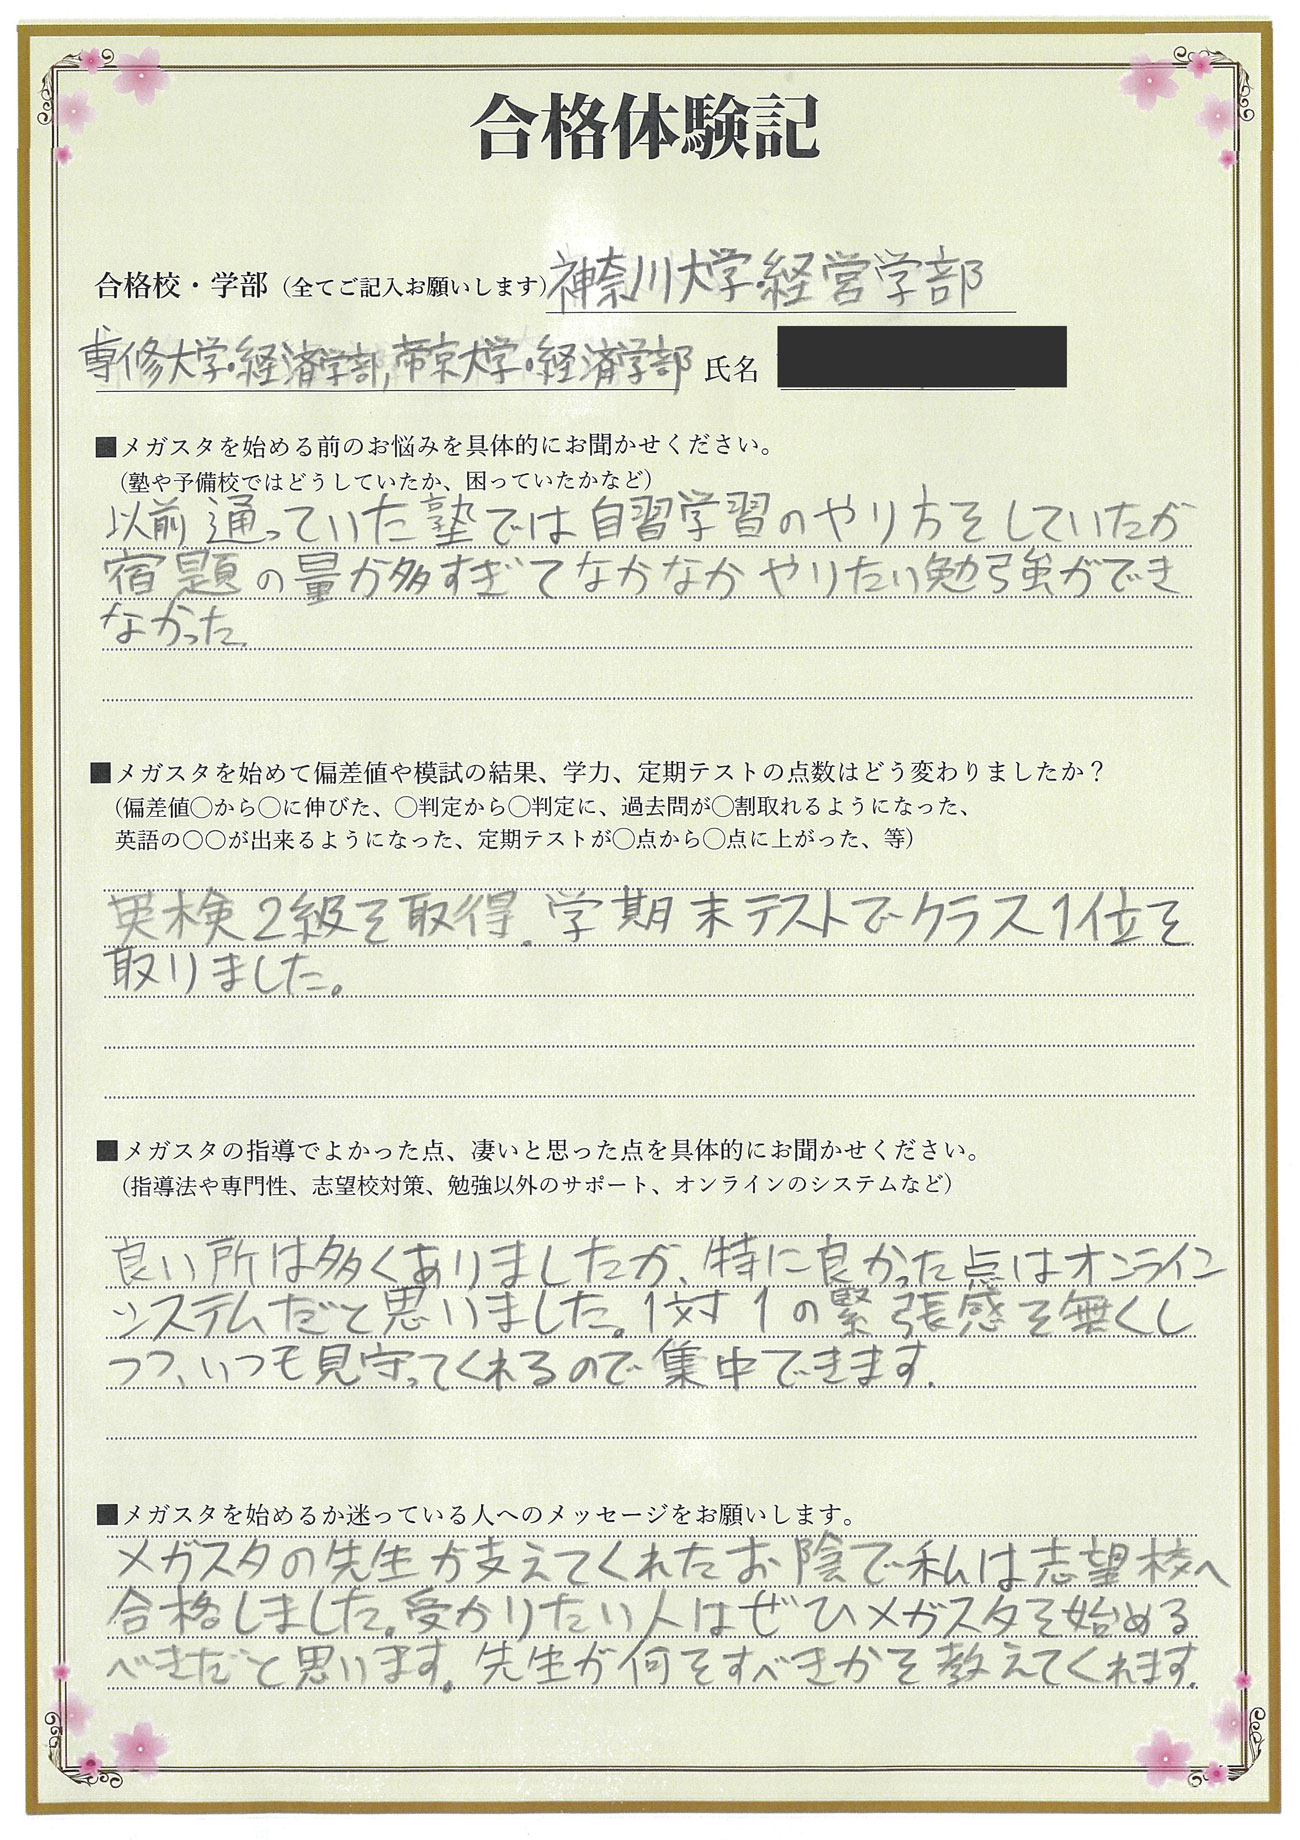 合格体験記
合格校・学部（全てご記入お願いします）神奈川大学・経営学部
専修大学・経済学部,帝京大学・経済学部 氏名
■メガスタを始める前のお悩みを具体的にお聞かせください。
（塾や予備校ではどうしていたか、困っていたかなど）
以前通っていた塾では自習学習のやり方をしていたが
宿題の量が多すぎてなかなかやりたい勉強ができ
なかった.
■メガスタを始めて偏差値や模試の結果、学力、定期テストの点数はどう変わりましたか？
（偏差値○から○に伸びた、○判定から○判定に、過去問が○割取れるようになった、
英語の○○が出来るようになった、定期テストが○点から○点に上がった、等）
英検2級を取得.学期末テストでクラス1位を
取りました。
■メガスタの指導でよかった点、凄いと思った点を具体的にお聞かせください。
（指導法や専門性、志望校対策、勉強以外のサポート、オンラインのシステムなど）
良い所は多くありましたが、特に良かった点はオンライン
システムだと思いました。1対1の緊張感を無くし
つつ、いつも見守ってくれるので集中できます.
■メガスタを始めるか迷っている人へのメッセージをお願いします。
メガスタの先生が支えてくれたお陰で私は志望校へ
合格しました。受かりたい人はぜひメガスタを始める
べきだと思います。先生が何をすべきかを教えてくれます.